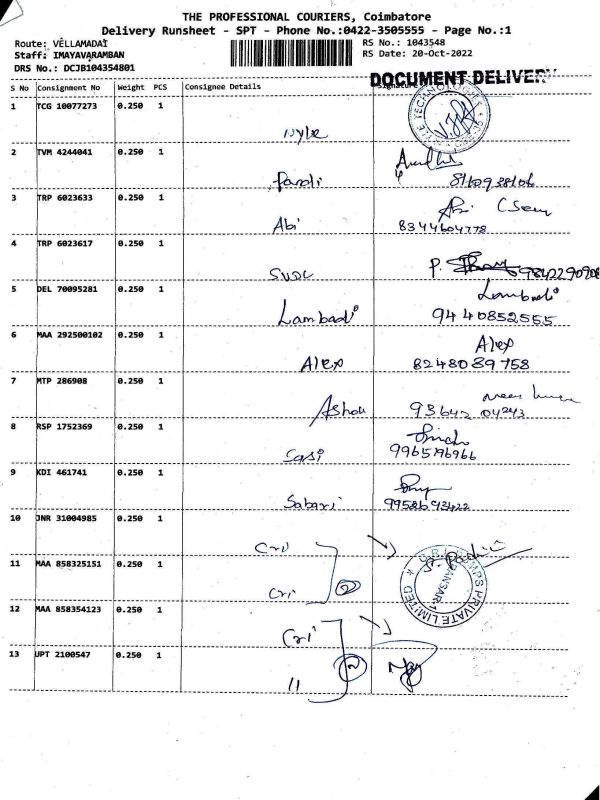 THE PROFESSIONAL COURIERS, Coimbatore
Delivery Runsheet - SPT - Phone No.:0422-3505555 - Page No.:1
Route: VELLAMADAI
RS No.: 1043548
Staff: IMAYAVARAMBAN
RS Date: 20-Oct-2022
DRS No.: DCJB104354801
DOCUMENT DELIVERY
S No Consignment No Weight PCS Consignee Details Signature
1 TCG 10077273 0.250 1
2 TVM 4244041 0.250 1
Pandi 8160938106
3 TRP 6023633 0.250 1
Abi 8344604778
4 TRP 6023617 0.250 1
P. 9842290908
5 DEL 70095281 0.250 1
Lambadi
Lambadi 9440852555
6 MAA 292500102 0.250 1
Alex
Alex 8248089758
7 MTP 286908 0.250 1
Ashok 93642 04243
8 RSP 1752369 0.250 1
Sasi 9965196966
9 KDI 461741 0.250 1
Sabari 9958693422
10 JNR 31004985 0.250 1
Cri
11 MAA 858325151 0.250 1
Cri 2
PRIVATE LIMITED
12 MAA 858354123 0.250 1
Cri
13 UPT 2100547 0.250 1
2
"